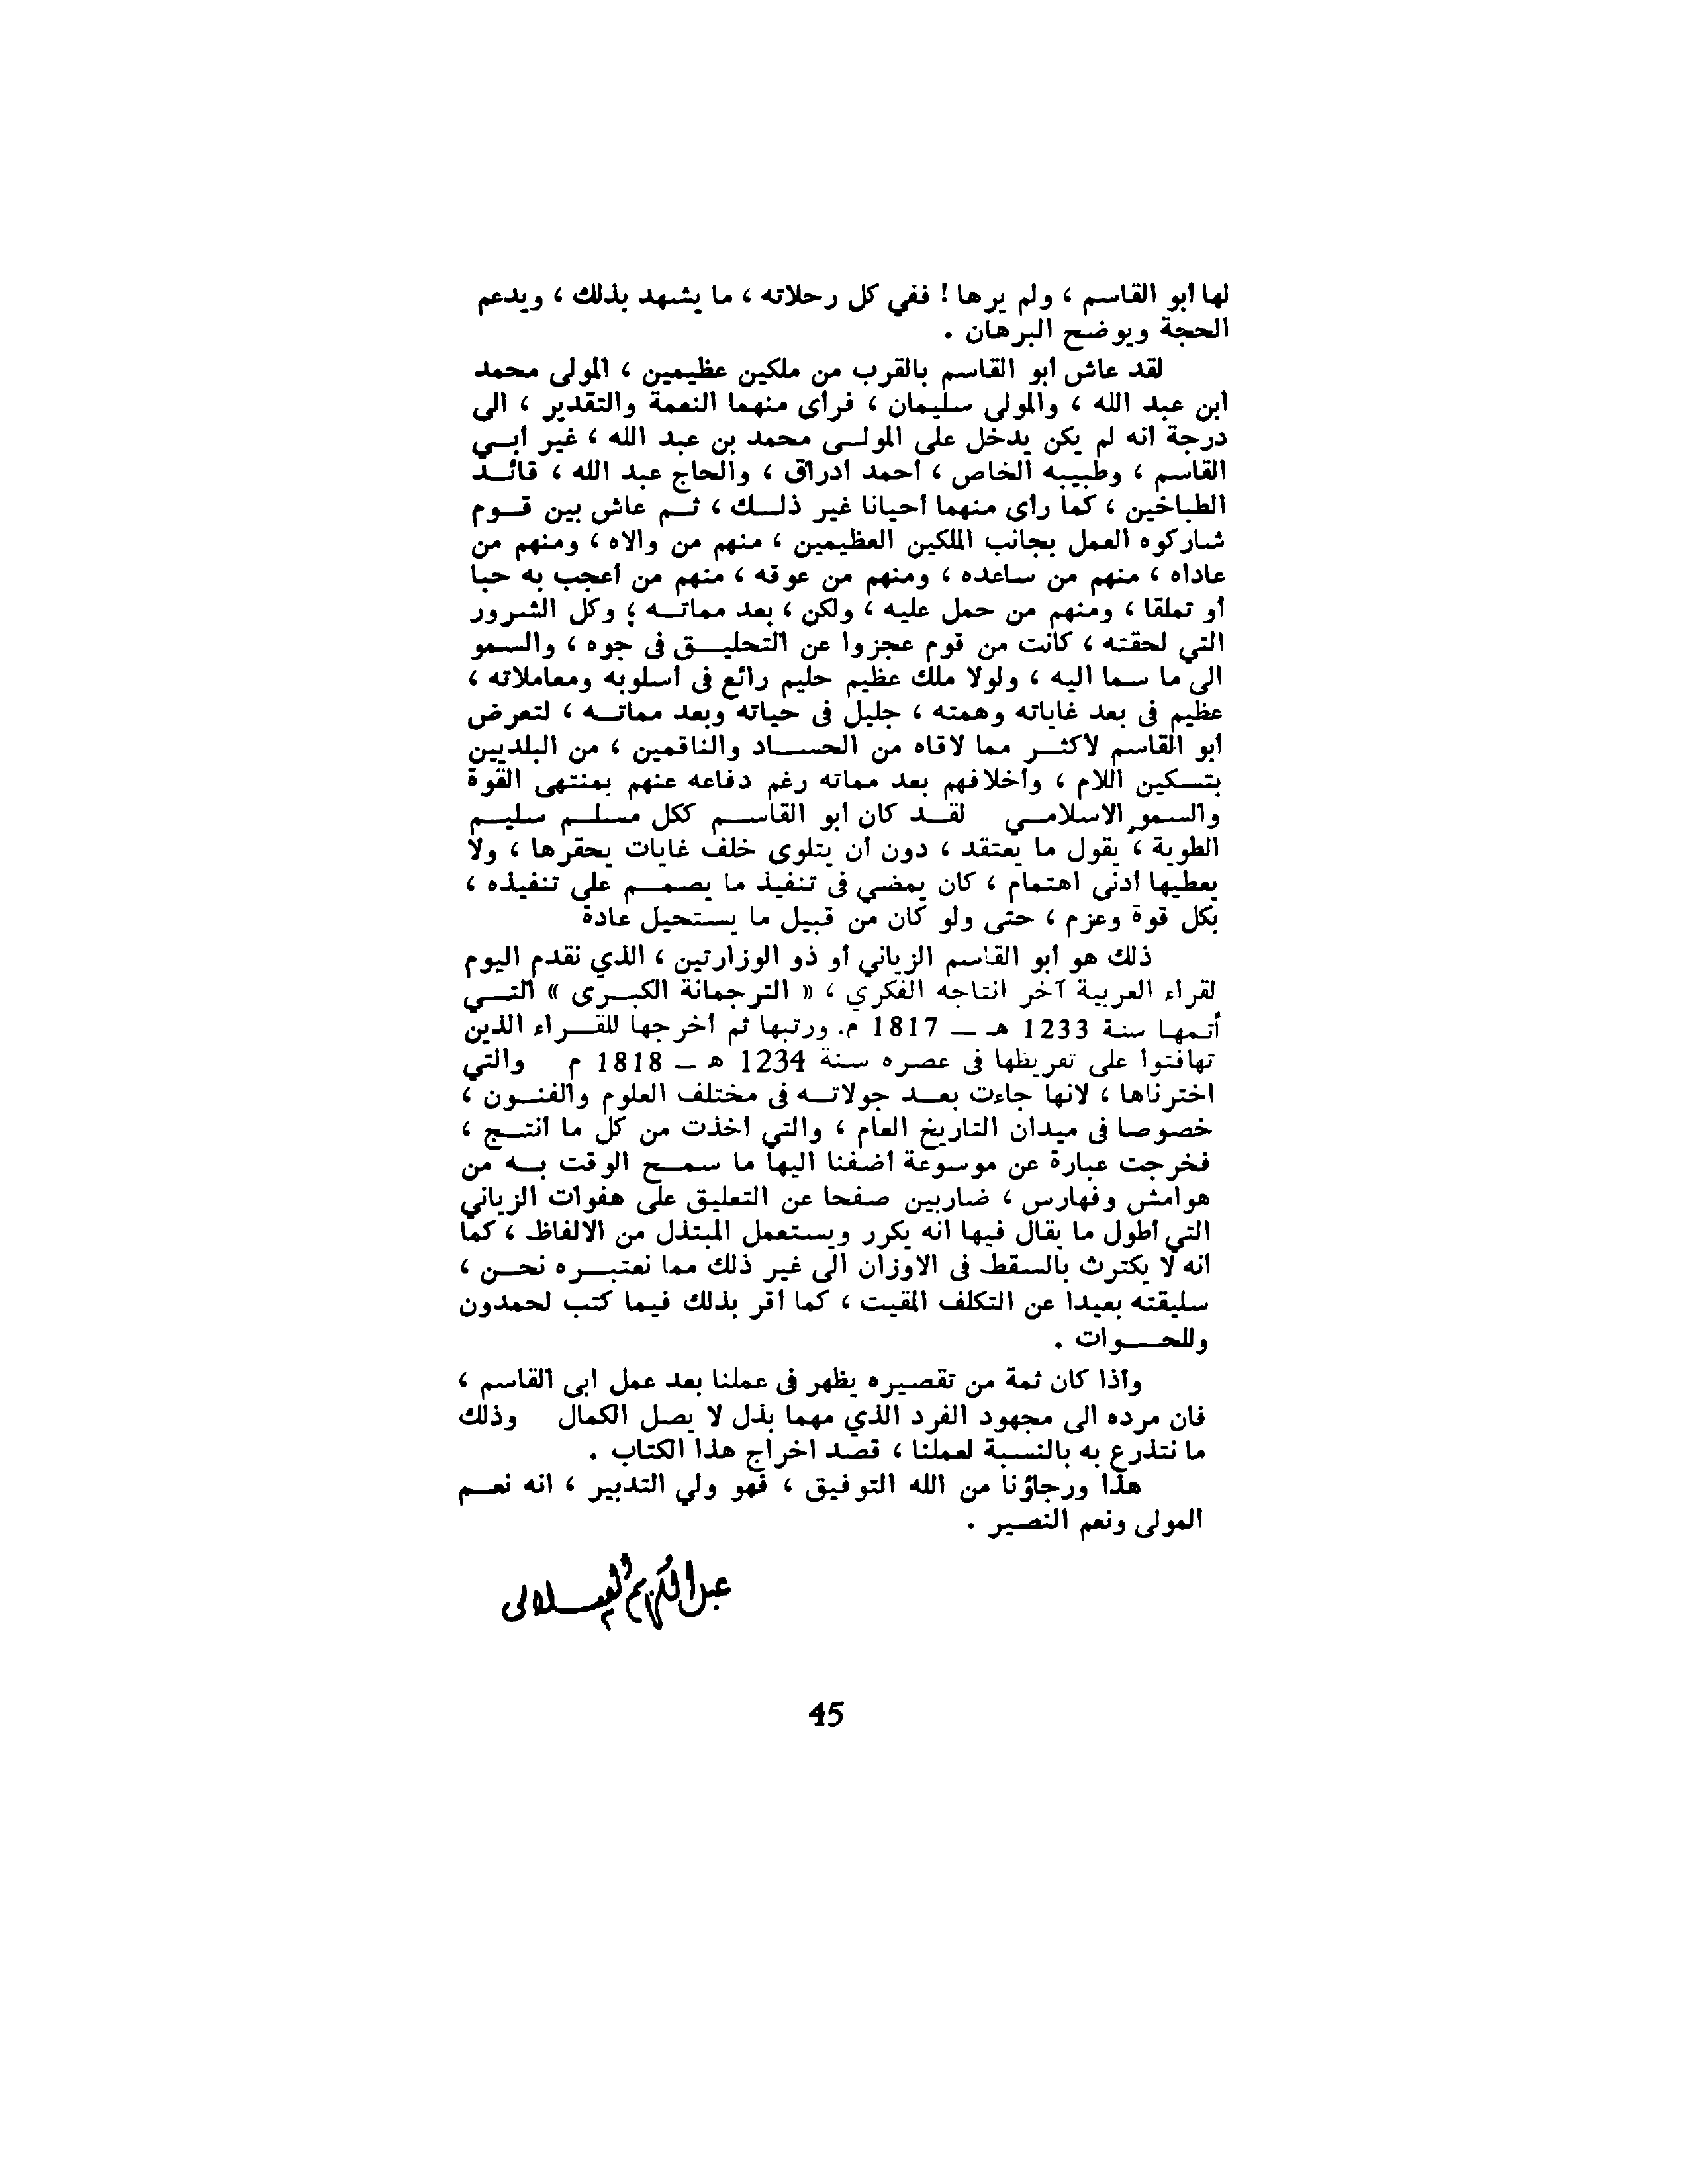 لها أبو القاسم ، ولم يرها ! ففي كل رحلاته ، ما يشهد بذلك ، ويدعم
الحجة ويوضح البرهان .
لقد عاش أبو القاسم بالقرب من ملكين عظيمين ، المولى محمد
ابن عبد الله ، والمولى سليمان ، فرأى منهما النعمة والتقدير ، الى
درجة أنه لم يكن يدخل على المولى محمد بن عبد الله ، غير أبي
القاسم ، وطبيبه الخاص ، أحمد أدراق ، والحاج عبد الله ، قائد
الطباخين ، كما رأى منهما أحيانا غير ذلك ، ثم عاش بين قوم
شاركوه العمل بجانب الملكين العظيمين ، منهم من والاه ، ومنهم من
عاداه ، منهم من ساعده ، ومنهم من عوقه ، منهم من أعجب به حبا
أو تملقا ، ومنهم من حمل عليه ، ولكن ، بعد مماته ؛ وكل الشرور
التي لحقته ، كانت من قوم عجزوا عن التحليق فى جوه ، والسمو
الى ما سما اليه ، ولولا ملك عظيم حليم رائع فى أسلوبه ومعاملاته ،
عظيم فى بعد غاياته وهمته ، جليل فى حياته وبعد مماته ، لتعرض
أبو القاسم لأكثر مما لاقاه من الحساد والناقمين ، من البلديين
بتسكين اللام ، وأخلافهم بعد مماته رغم دفاعه عنهم بمنتهى القوة
والسمو الاسلامي لقد كان أبو القاسم ككل مسلم سليم
الطوية ، يقول ما يعتقد ، دون أن يتلوى خلف غايات يحقرها ، ولا
يعطيها أدنى اهتمام ، كان يمضي فى تنفيذ ما يصمم على تنفيذه ،
بكل قوة وعزم ، حتى ولو كان من قبيل ما يستحيل عادة
ذلك هو أبو القاسم الزياني أو ذو الوزارتين ، الذي نقدم اليوم
لقراء العربية آخر انتاجه الفكري ، « الترجمانة الكبرى » التي
أتمها سنة 1233 هـ — 1817 م. ورتبها ثم أخرجها للقراء الذين
تهافتوا على تقريظها فى عصره سنة 1234 ه — 1818 م والتي
اخترناها ، لانها جاءت بعد جولاته فى مختلف العلوم والفنون ،
خصوصا فى ميدان التاريخ العام ، والتي أخذت من كل ما أنتج ،
فخرجت عبارة عن موسوعة أضفنا اليها ما سمح الوقت به من
هوامش وفهارس ، ضاربين صفحا عن التعليق على هفوات الزياني
التي أطول ما يقال فيها انه يكرر ويستعمل المبتذل من الالفاظ ، كما
انه لا يكترث بالسقط فى الاوزان الى غير ذلك مما نعتبره نحن ،
سليقته بعيدا عن التكلف المقيت ، كما أقر بذلك فيما كتب لحمدون
وللحوات .
واذا كان ثمة من تقصيره يظهر فى عملنا بعد عمل ابى القاسم ،
فان مرده الى مجهود الفرد الذي مهما بذل لا يصل الكمال وذلك
ما نتذرع به بالنسبة لعملنا ، قصد اخراج هذا الكتاب .
هذا ورجاؤنا من الله التوفيق ، فهو ولي التدبير ، انه نعم
المولى ونعم النصير .
عبد الكريم الفيلالى
45